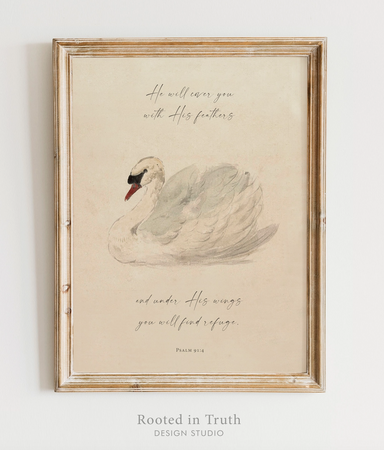 He will cover you
with His feathers
and under His wings
you will find refuge.
Psalm 91:4
Rooted in Truth
DESIGN STUDIO